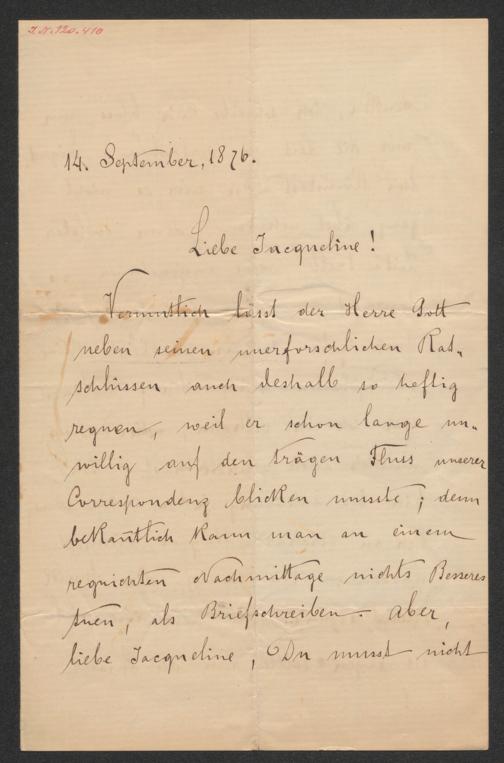 I.N. 120.410
14. September, 1896.
Liebe Jacqueline!
Vermutlich lässt der Herre Gott
neben seinen unerforschlichen Rat-
schlüssen auch deshalb so heftig
regnen, weil er schon lange un-
willig auf den trägen Fluss unserer
Correspondenz blicken musste; denn
bekanntlich kann man an einem
regnichten Nachmittage nichts Besseres
tuen, als Briefschreiben. Aber,
liebe Jacqueline, Du musst nicht